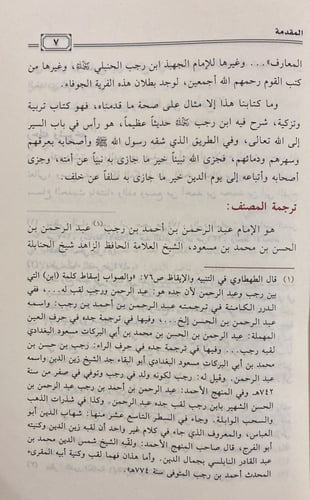 المقدمة
٧
المعارف»... وغيرها للإمام الجهبذ ابن رجب الحنبلي رحمه الله، وغيرها من
كتب القوم رحمهم الله أجمعين، لوجد بطلان هذه الفرية الجوفاء.
وما كتابنا هذا إلا مثال على صحة ما قدمناه، فهو كتاب تربية
وتزكية، شرح فيه ابن رجب رحمه الله حديثاً عظيماً، هو رأس في باب السير
إلى الله تعالى، وفي الطريق الذي شقه رسول الله ﷺ وأصحابه بعرقهم
وسهرهم ودمائهم، فجزى الله نبينا خير ما جازى به نبياً عن أمته، وجزى
أصحابه وأتباعه إلى يوم الدين خير ما جازى به سلفاً عن خلف.
ترجمة المصنف:
هو الإمام عبد الرحمن بن أحمد بن رجب(١) عبد الرحمن بن
الحسن بن محمد بن مسعود، الشيخ العلامة الحافظ الزاهد شيخ الحنابلة
(١) قال الطهطاوي في التنبيه والإيقاظ ص٧٦: «والصواب إسقاط كلمة (ابن) التي
بين رجب وعبد الرحمن لأن جده هو: عبد الرحمن ورجب لقب له...، ففي
الدرر الكامنة في ترجمة عبد الرحمن بن أحمد بن رجب: واسمه
عبد الرحمن بن الحسن إلخ...، وفيها في ترجمة جده في حرف العين
المهملة: عبد الرحمن بن الحسن بن محمد بن أبي البركات مسعود البغدادي
لقبه رجب... وفيها في ترجمة جده في حرف الراء: رجب بن حسن بن
محمد بن أبي البركات مسعود البغدادي أبو البقاء جد الشيخ زين الدين واسمه
عبد الرحمن، وقيل له: رجب لكونه ولد في رجب وتوفي في صفر من سنة
٧٤٢هـ وفي المنهج الأحمد: عبد الرحمن بن أحمد بن رجب عبد الرحمن بن
الحسن الشهير بابن رجب لقب جده عبد الرحمن، وكذا في شذرات الذهب
والسحب الوابلة، وجاء في السطر التاسع عشر منها: شهاب الدين أبو
العباس، والمعروف الذي جاء في كلام غير واحد أن لقبه زين الدين وكنيته
أبو الفرج، قال صاحب المنهج الأحمد: ولقبه الشيخ شمس الدين محمد بن
عبد القادر النابلسي بجمال الدين، وأما هذان فهما لقب وكنية أبيه المقرى
المحدث أحمد بن رجب المتوفى سنة ٧٧٤هـ»